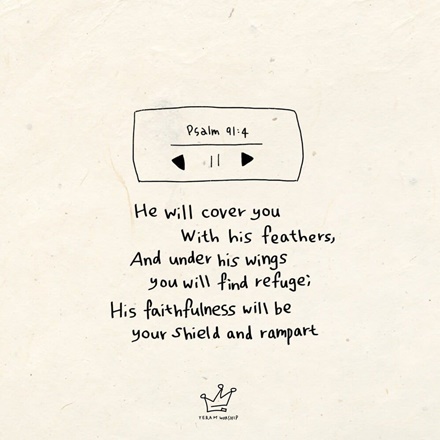 Psalm 91:4
He will cover you
With his feathers,
And under his wings
you will find refuge;
His faithfulness will be
your shield and rampart
YERAM WORSHIP